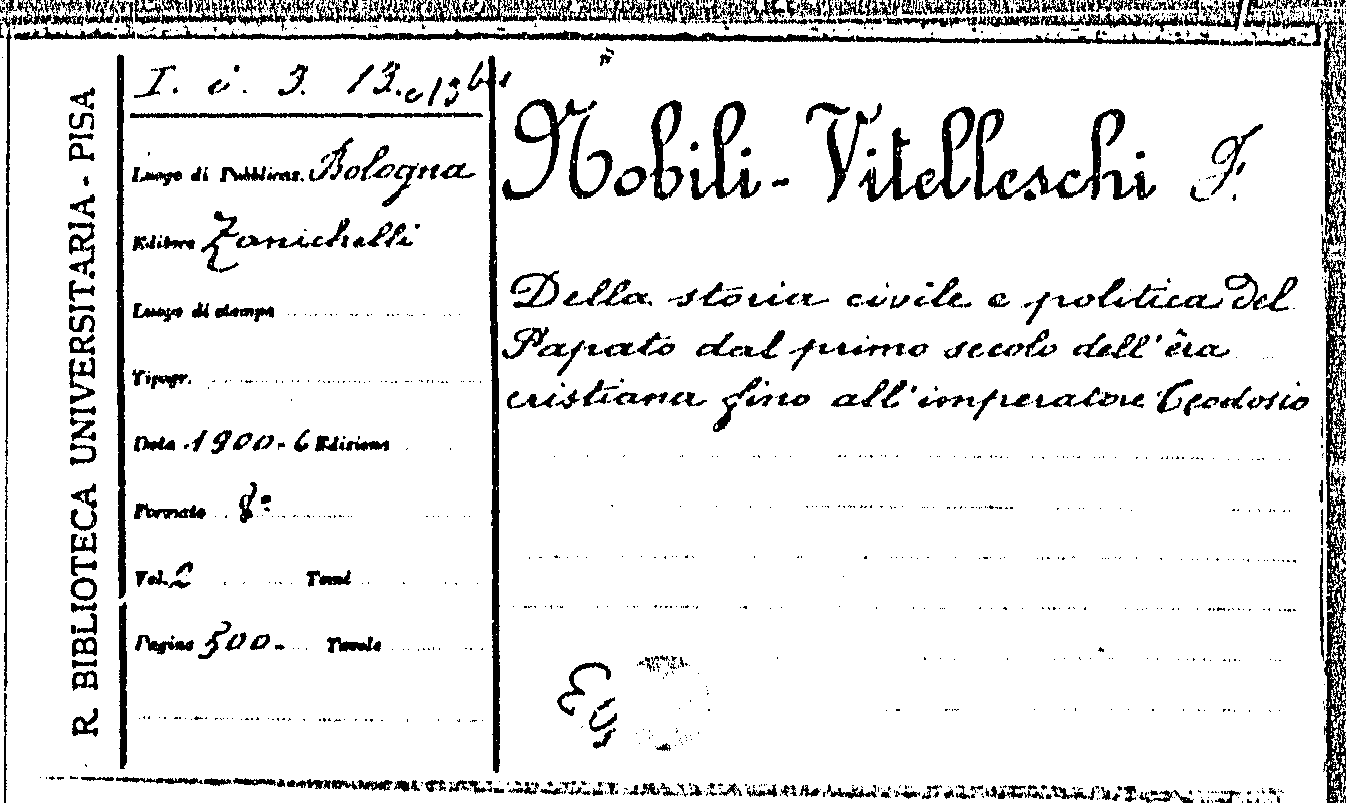 R. BIBLIOTECA UNIVERSITARIA - PISA
I. i. 3. 13. e 13 bis
Luogo di Pubblicaz. Bologna
Editore Zanichelli
Luogo di stampa
Tipogr.
Data 1900-6 Edizione
Formato 8°
Vol. 2 Tomi
Pagine 500- Tavole
Nobili-Vitelleschi F.
Della storia civile e politica del
Papato dal primo secolo dell'êra
cristiana fino all'imperatore Teodosio